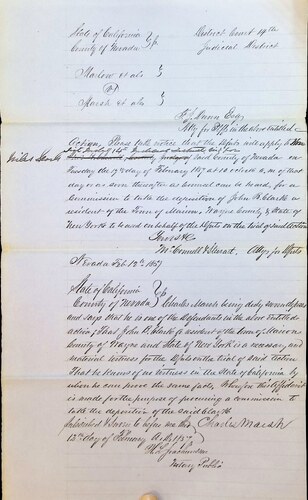 State of California
County of Nevada
District Court 14th
Judicial District
Marlow et als
vs
Marsh et als
Atty for Plff in the above entitled
Action, Please take notice that the Defts will apply to
said County of Nevada on
Tuesday the 17 day of February 1857 at 10 o'clock A.M. of that
day or as soon thereafter as counsel can be heard, for a
Commission to take the deposition of John R. Clark a
resident of the Town of Wayne County & State of
New York to be used on behalf of the Defts on the trial of said Action
McConnell & Stewart, Attys for Defts
Nevada Feb 13th 1857
State of California
County of Nevada Charles Marsh being duly sworn deposes
and says that he is one of the Defendants in the above entitled
action; That John R. Clark a resident of the Town of
County of Wayne and State of New York is a necessary and
material witness for the Defts on the trial of said Action
That he knows of no witness in the State of California by
whom he can prove the same facts, Wherefore this Affidavit
is made for the purpose of procuring a commission to
take the deposition of the said Clark
Subscribed & Sworn to before me this Charles Marsh
13th day of February A.D. 1857
Notary Public